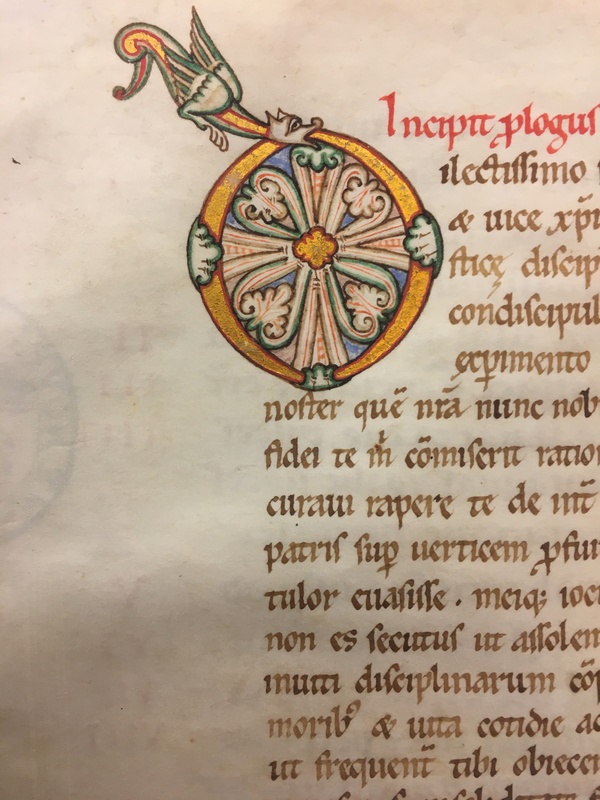 Incipit plogus
Dilectissimo
æ uice xp̄i
sticę discip
condiscipul
ęxpimento
noster quē nr̄a nunc nob
fidei te m̄ cōmiserit ratio
curaui rapere te de int̄
patris sup uerticem pfu
tulor euasisse . meiq; ioc
non es secutus ut assolen
multi disciplinarum cōp
morib⁹ æ uita cotidie ac
ut frequent̄ tibi obiecer